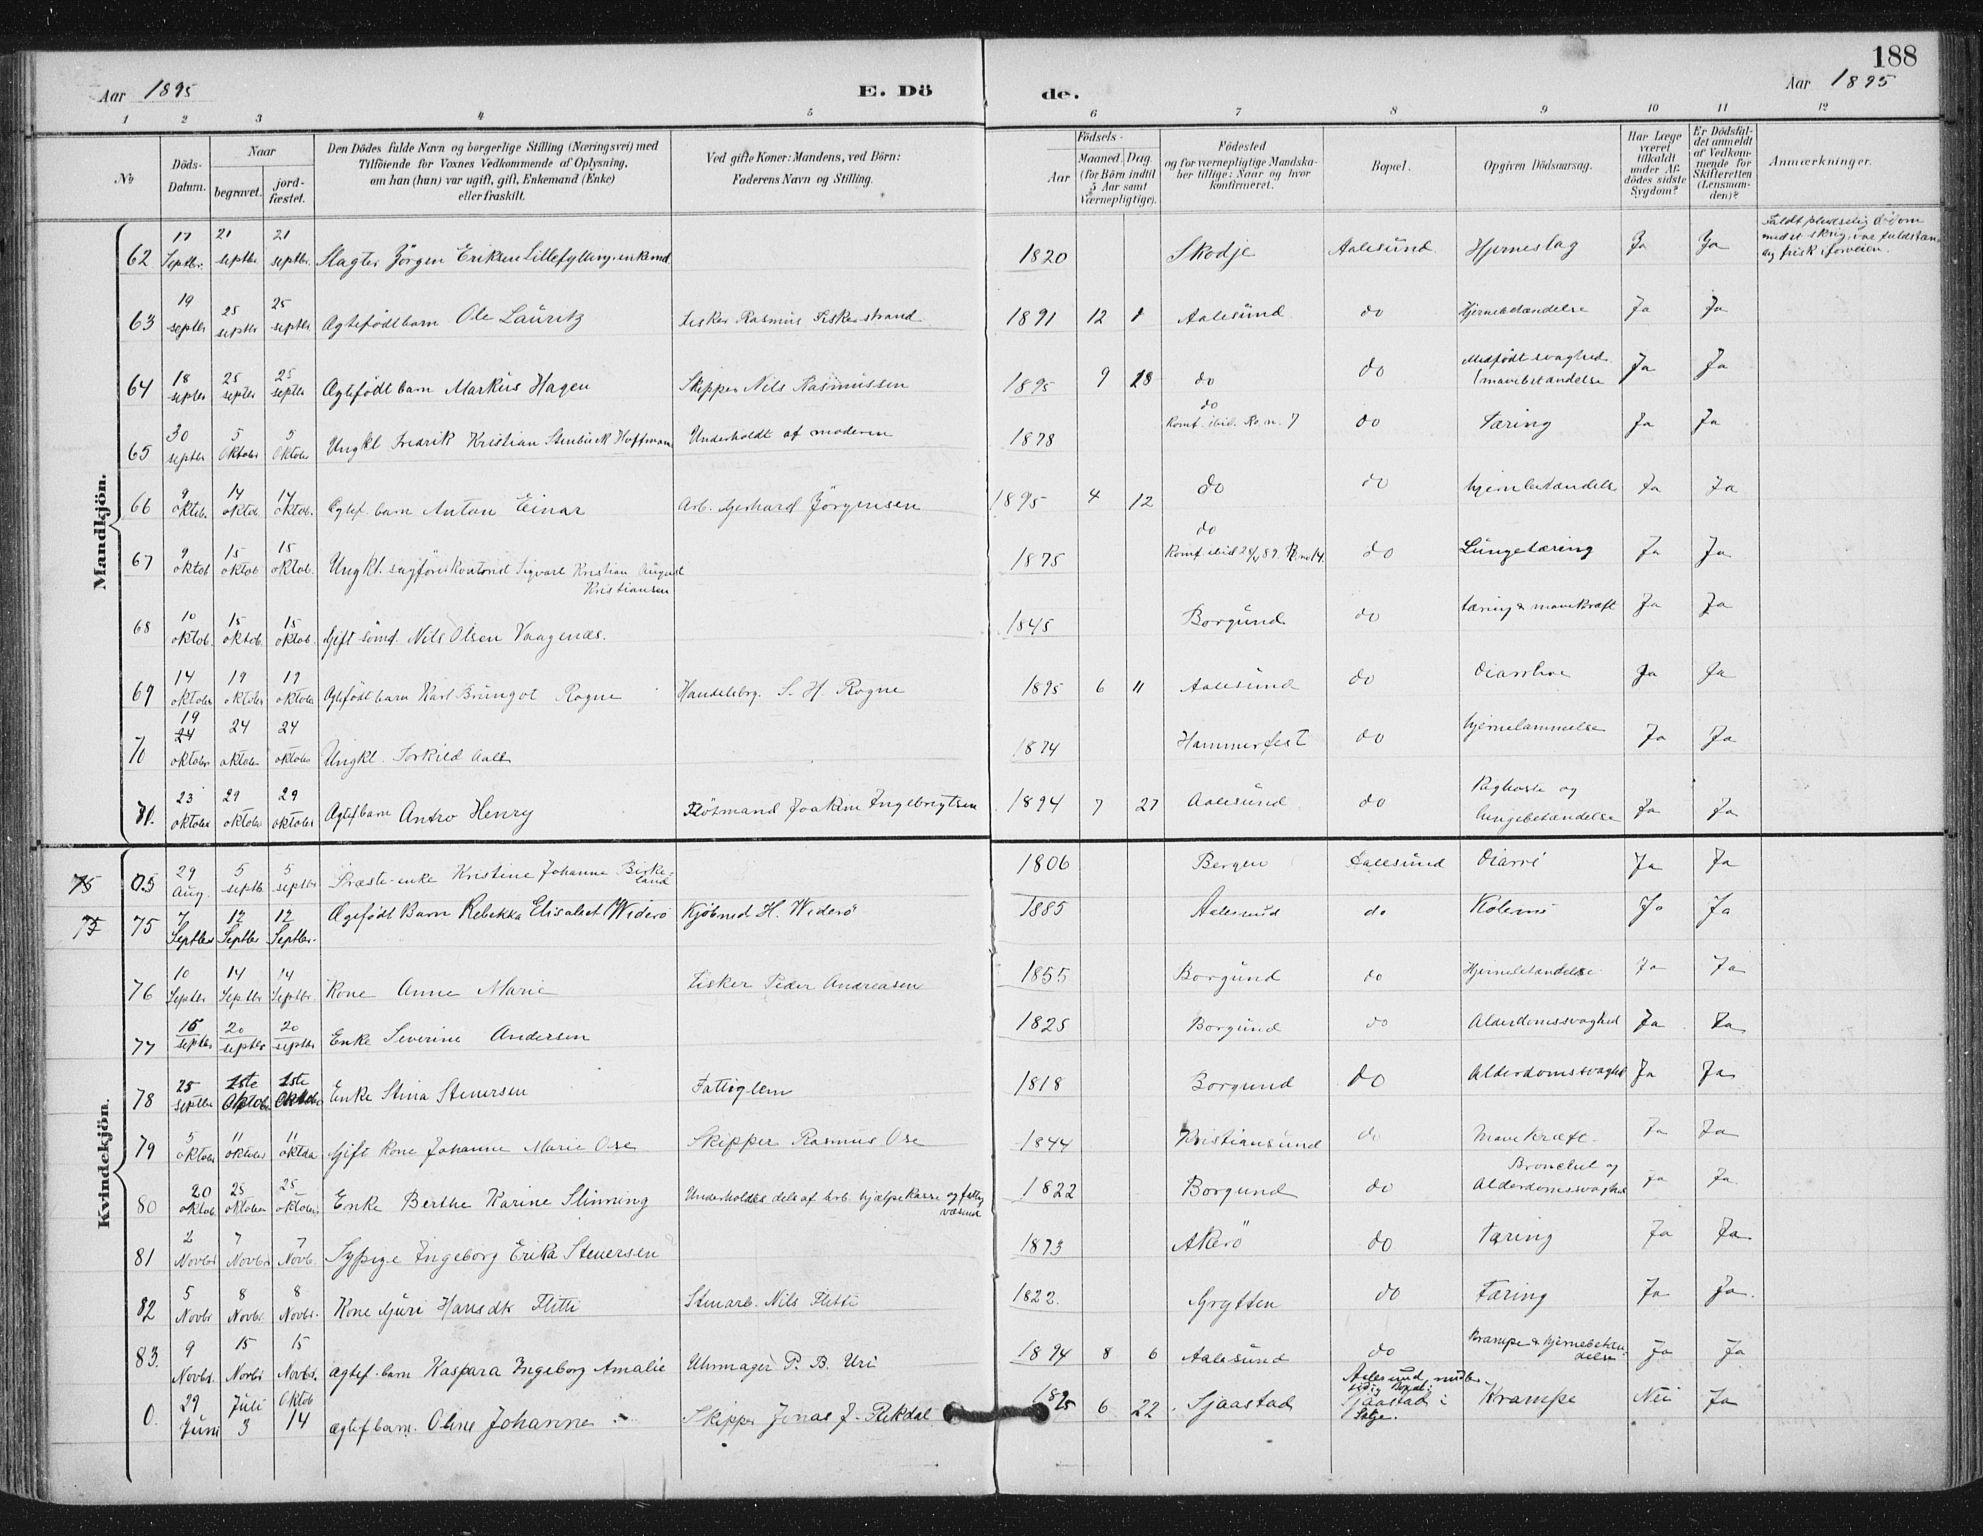 188
Aar 1895 E. Dö de. Aar 1895
1 2 3 4 5 6 7 8 9 10 11 12
No
Döds-Datum.
Naar
begravet.
jord-fæstet.
Den Dödes fulde Navn og borgerlige Stilling (Næringsvei) med
Tilföiende for Voxnes Vedkommende af Oplysning,
om han (hun) var ugift, gift, Enkemand (Enke)
eller fraskilt.
Ved gifte Koner: Mandens, ved Börn:
Faderens Navn og Stilling.
Födsels-
Aar
Maaned. Dag.
(for Börn indtil
5 Aar samt
Værnepligtige).
Födested
og for værnepligtige Mandska-
ber tillige: Naar og hvor
konfirmeret.
Bopæl.
Opgiven Dödsaarsag.
Har Læge
været
tilkaldt
under Af-
dödes sidste
Sygdom?
Er Dödsfal-
det anmeldt
af Vedkom-
mende for
Skifteretten
(Lensman-
den)?
Anmærkninger.
Mandkjön.
62 17 Septbr. 21 septbr 21 septbr. Slagter Jörgen Eriksen Lillefylling, enkemd 1820 Skodje Aalesund Hjerneslag Ja Ja Faldt pludselig död om med et skrig, var fuldstæn- og frisk iforveien.
63 19 septbr 25 septbr 25 septbr Ægtefödt barn Ole Lauritz Fisker Rasmus Fiskerstrand 1891 12 Aalesund do Hjernebetændelse Ja Ja
64 18 septbr 25 septbr 25 septbr Ægtefödt barn Markus Hagen Skipper Nils Rasmussen 1895 9 do do Medfödt svaghed mavebetændelse Ja Ja
65 30 septbr 5 Oktober 5 Oktober Ungkl Fredrik Kristian Stenbuck Hoffman Underholdt af moderen 1878 do Konf. ibid. No 7 do Tæring Ja Ja
66 9 oktob. 14 oktob. 14 oktob. Ægtef. barn Anton Einar Arb. Gerhard Jörgensen 1895 4 12 do do hjernebetændelse Ja Ja
67 9 oktob 15 oktob 15 oktob. Ungkl. sagförerkontorist Sigvart Kristian August Kristiansen 1875 do Konf ibid 89 do Lungetæring Ja Ja
68 10 oktob. 15 oktob. 15 oktob. Gift sömd. Nils Olsen Vaagenæs. 1845 Borgund do tæring & mavekræft Ja Ja
69 14 oktober 19 oktober 19 oktober Ægtefödt barn Karl Brungot Rogne Handelsbg. S. H. Rogne 1895 6 11 Aalesund do Diarrhoe Ja Ja
70 19 24 oktober 24 oktober 24 oktober Ungkl. Torkild Aall 1874 Hammerfest do hjernelammelse Ja Ja
71. 23 oktober 29 oktober 29 oktober Ægtef barn Antro Henry Joakim Ingebrigtsen 1894 7 27 Aalesund do Kighoste og lungebetændelse Ja Ja
Kvindekjön.
75 05 29 Aug. 5 septb 5 septbr Præste-enke Kristine Johanne Birkeland 1806 Bergen Aalesund Diarré Ja Ja
75 7 Septbr 12 Septbr 12 Septbr. Ægtefödt Barn Rebekka Elisabet Widerö Kjöbmd H. Widerö 1885 Aalesund do Ja Ja
76 10 Septbr 14 Septbr 14 Septbr. Kone Anne Marie Fisker Peder Andreasen 1855 Borgund do Hjernebetændelse Ja Ja
77 15 septbr 20 septbr 20 septbr Enke Severine Andersen 1825 Borgund do Alderdomssvaghed Ja Ja
78 25 septbr 1ste Oktobr 1ste Oktober Enke Stina Stenersen Fattiglem 1818 Borgund do Alderdomssvaghed Ja Ja
79 5 oktober 11 oktober 11 oktober Gift kone Johanne Marie Ose Skipper Rasmus Ose 1844 Kristiansund do Mavekræft. Ja Ja
80 20 oktob 25 oktober 25 oktober. Enke Berthe Karine Slinning Underholdtes dels af Arb. hjælpekasse og fattigvæsend 1822 Borgund do Bronchit og Alderdomssvaghed Ja Ja
81 2 Novbr 7 Novbr 7 Novb. Sypige Ingeborg Erika Stenersen 1873 Akerö do Tæring Ja Ja
82 5 Novbr 8 Novbr. 8 Novbr. Kone Guri Hansdtr Flitti Stenarb. Nils Flitti 1822. Grytten do Tæring Ja Ja.
83. 9 Novbr. 15 Novbr 15 Novbr. Ægtef. barn Kaspara Ingeborg Amalie Uhrmager P. B. Uri 1894 8 6 Aalesund do Krampe & hjernebetændelse Ja Ja
0. 29 Juni Juli 3 Oktob 14 Ægtef barn. Oline Johanne Skipper Jonas J. Flekdal 1895 6 22 Sjaastad Aalesund, midler- tidig Sjaastad i Krampe Nei Ja